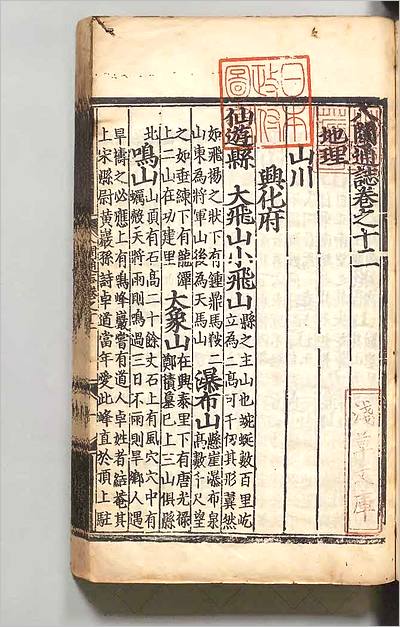 八閩通誌卷之十二
地理
山川
興化府
仙遊縣 大飛山小飛山 縣之主山也蜿蜒數百里屹
立為二高可千仞其形翼然
如飛揚之狀下有鍾鼎馬鞍二
山東為將軍山後為天馬山 瀑布山 懸崖瀑布泉
高數千尺望
之如垂練下有龍潭
上二山在功建里 大象山 在興泰里下有唐光祿
鄭積墓已上三山俱縣
北 鳴山 山頂有石高二十餘丈石上有風穴穴中有
天將雨則鳴過三日不雨則旱鄉人遇
旱禱之必應上有鳴峰巖嘗有道人卓姓者結菴其
上宋縣尉黄巖孫詩卓道當年愛此峰直於頂上駐
日本
政府
圖
淺草文庫